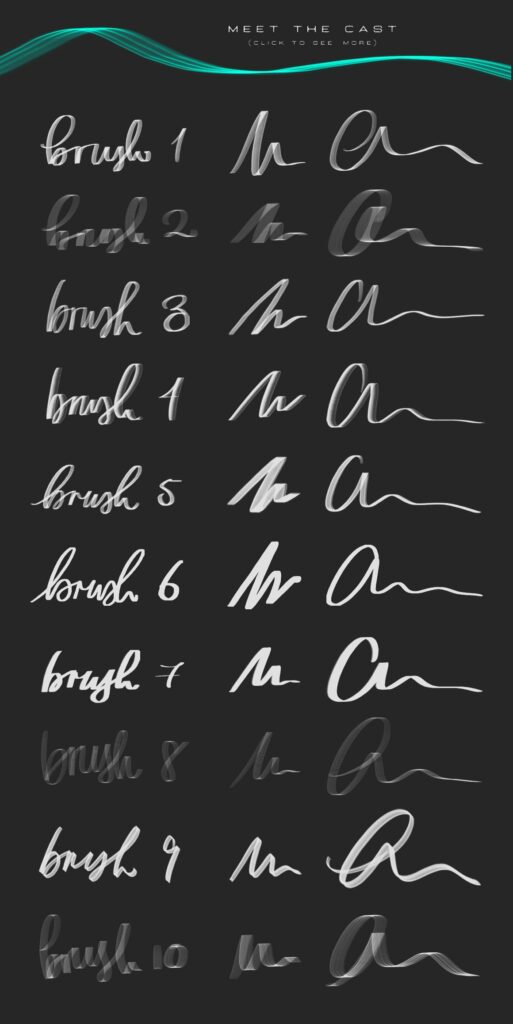 MEET THE CAST
(CLICK TO SEE MORE)
brush 1
brush 2
brush 3
brush 4
brush 5
brush 6
brush 7
brush 8
brush 9
brush 10